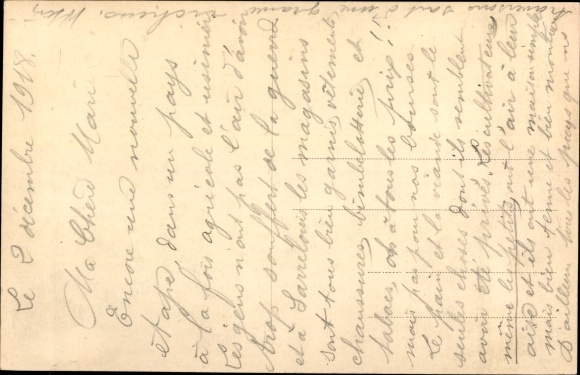 Le 2 décembre 1918.
Ma Chère Marie
Encore une nouvelle
étape, dans un pays
à la fois agricole et usinier
Les gens n'ont pas l'air d'avoir
trop souffert de la guerre
et à Sarrelouis les magasins
sont tous bien garnis, vêtements
chaussures, bimbeloterie, et
tabacs, oh à tous les prix!
mais pas pour nos bourses.
Le pain et la viande sont les
seules choses dont ils semblent
avoir été privés. Les cultivateurs
même les petits ont l'air à leur
aise et ils ont une maison simple
mais bien tenue et bien montée
D'ailleurs tous les pays que ns
traversons sont d'une grande
richesse.